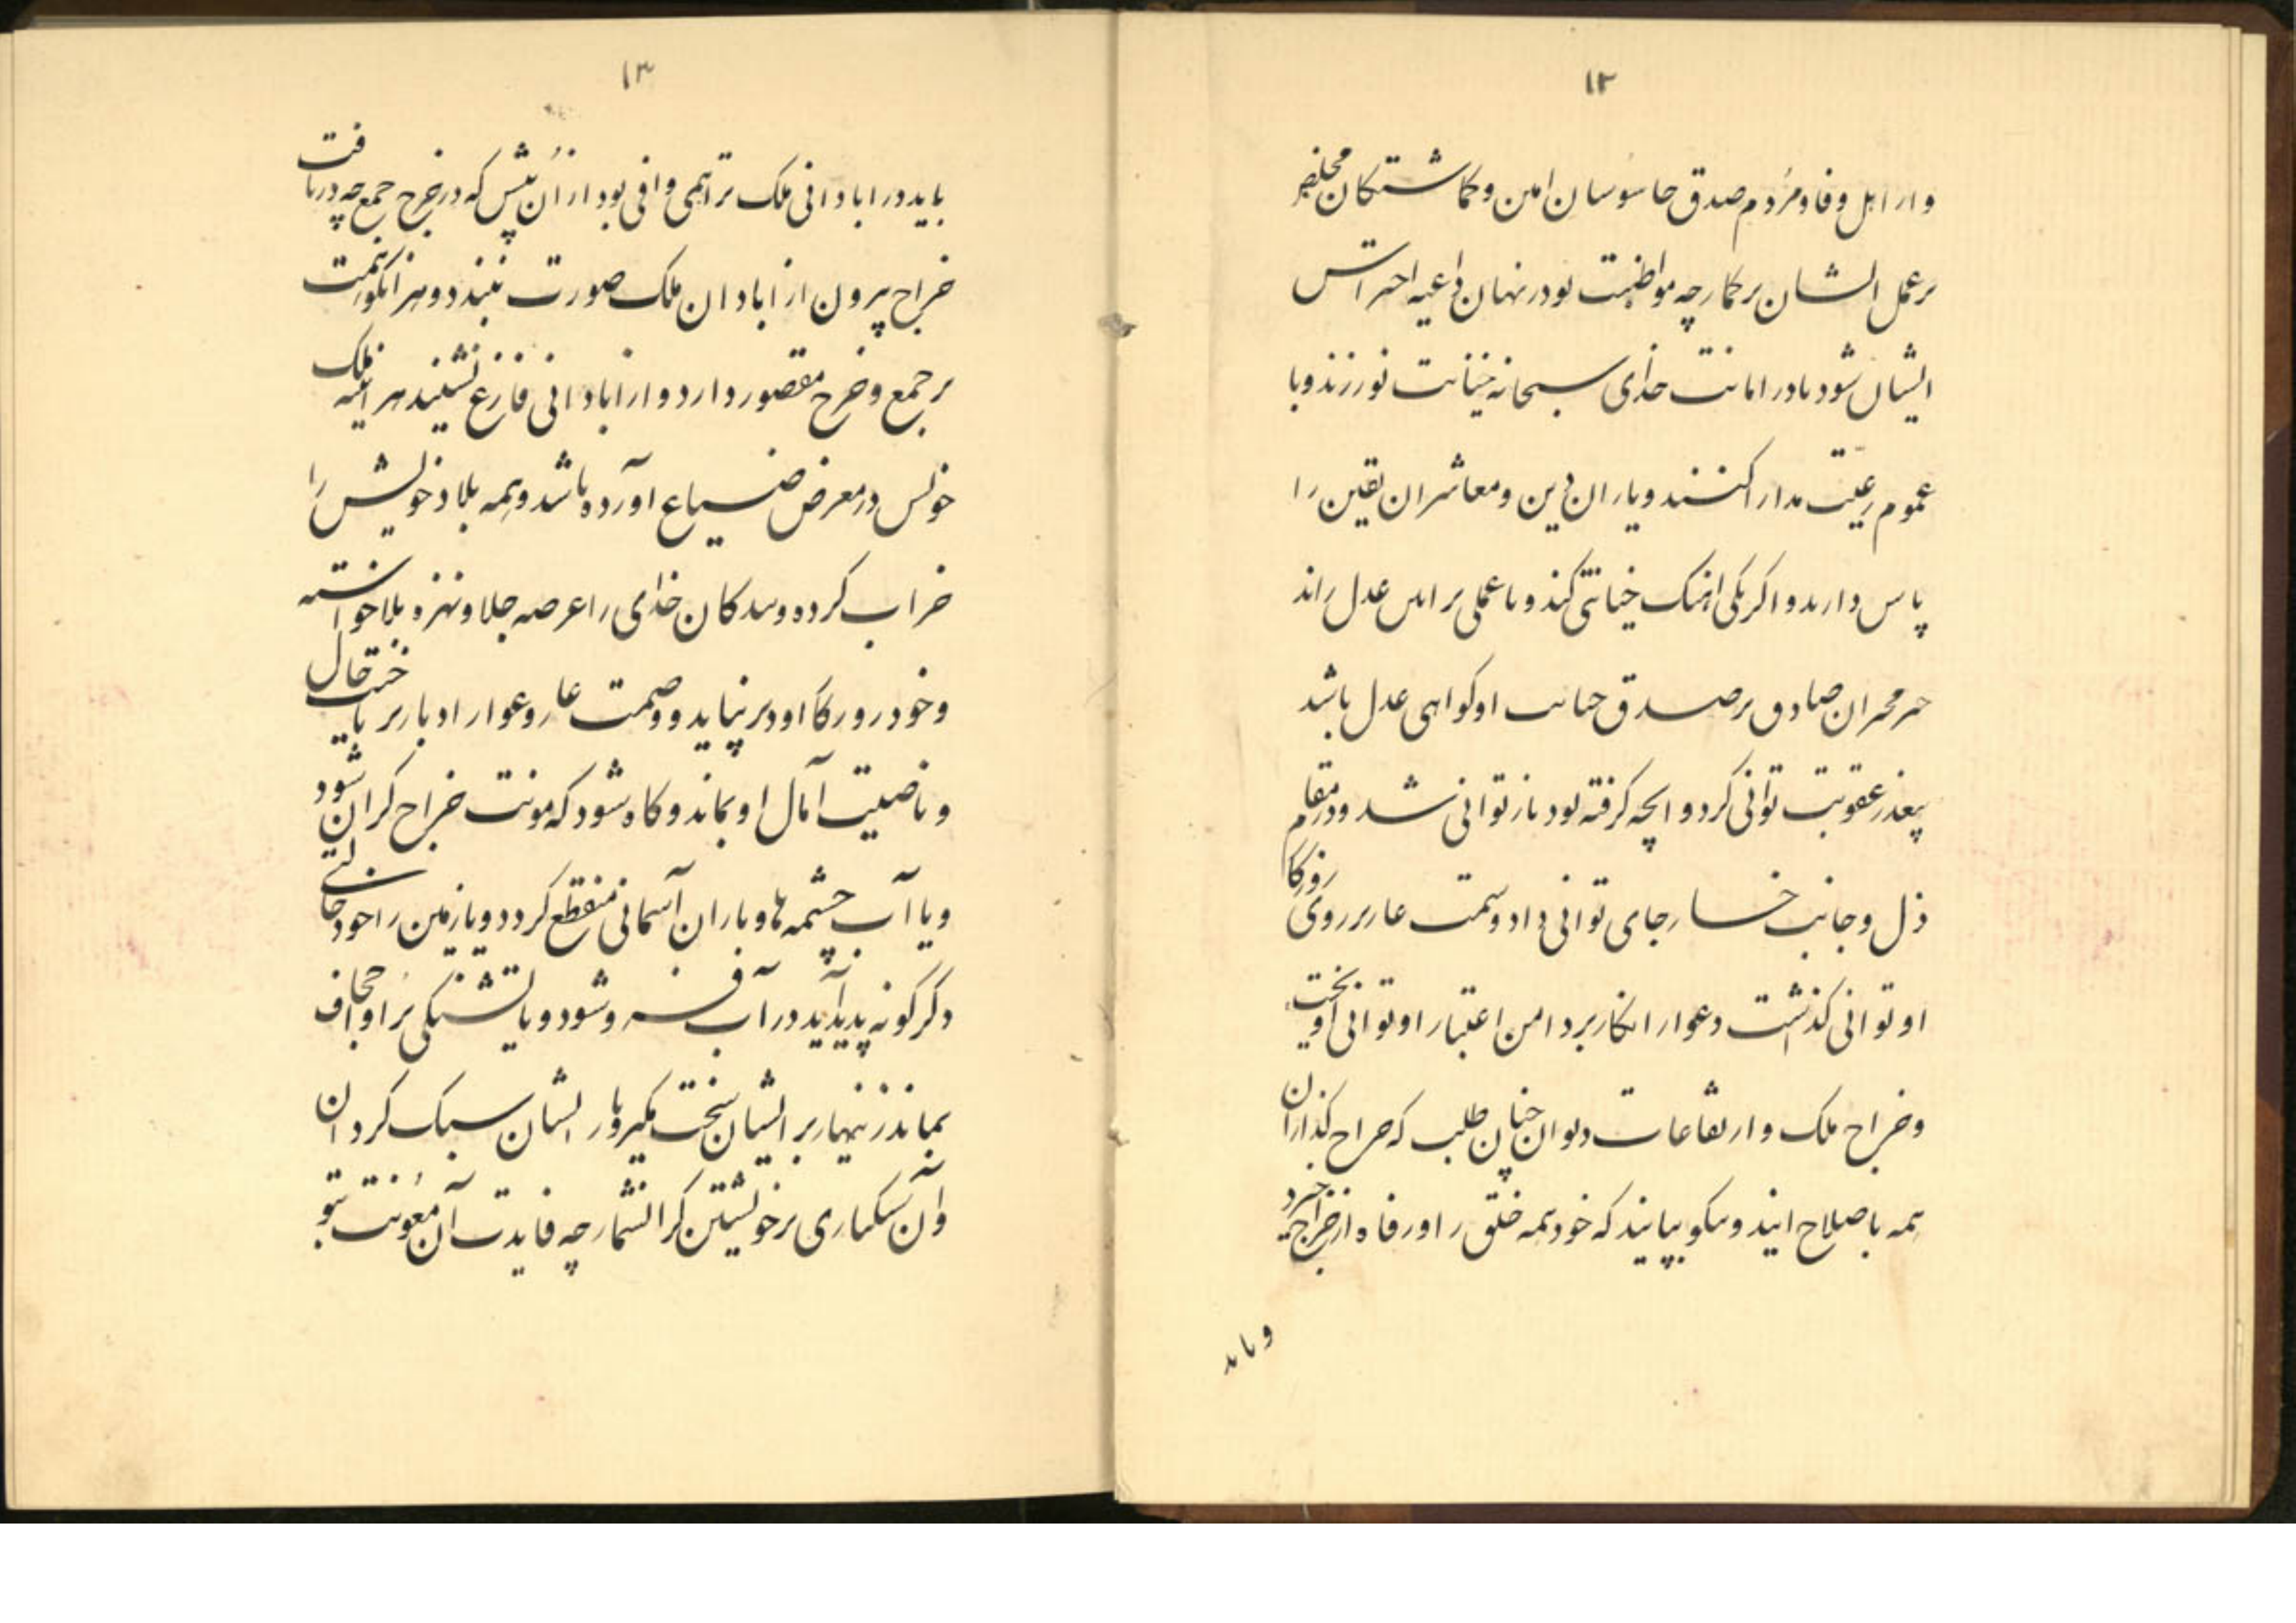 ۱۲
و از اهل وفا و مردم صدق جاسوسان امین و کماشتکان مخلص
بر عمل ایشان برکمار چه مواظبت تو در نهان داعیه احتراس
ایشان شود تا در امانت خدای سبحانه خیانت نورزند و با
عموم رعیت مدارا کنند و یاران دین و معاشران یقین را
پاس دارند و اکر یکی از خیانتی کند و یا عملی بر این عدل راند
خبر مخبران صادق بر صدق خیانت او کواهی عدل باشد
بعذر عقوبت توانی کرد و آنچه کرفته بود باز توانی شد و در مقام
ذل و جانب خسار جای توانی داد و سمت عار بر روی روزکار
او توانی کذاشت و عوار انکار بر دامن اعتبار او توانی آویخت
و خراج ملک و ارتفاعات دیوان چنان طلب که خراج کذاران
همه با صلاح آیند و نیکو بپایند که خود همه خلق را ورفاه از خراج
و باید
۱۳
باید در ابادانی ملک ترا همی وافی بود از آن پیش که در خرج جمع چه دریافت
خراج بیرون از ابادان ملک صورت نبندد و هر آنکو همت
بر جمع و خرج مقصور دارد و از ابادانی فارغ نشیند هر آینه ملک
خویش در معرض ضیاع آورده باشد و همه بلاد خویش را
خراب کرده و بندکان خدای را عرضه جلا و نهزه بلا خواسته
و خود روزکار او دیر نپاید و وصمت عار و عوار ادبار بر حال
و ناصیت آمال او بماند و کاه شود که مونت خراج کران شود
و یا آب چشمه ها و باران آسمانی منقطع کردد و یا زمین را خود حالتی
دکرکونه پدید آید در آب فرو شود و یا تشنکی بر او اجحاف
بماند زینهار بر ایشان سخت مکیر و بار ایشان سبک کردان
و آن سبکباری بر خویشتن کران مشمار چه فایدت آن معونت بتو